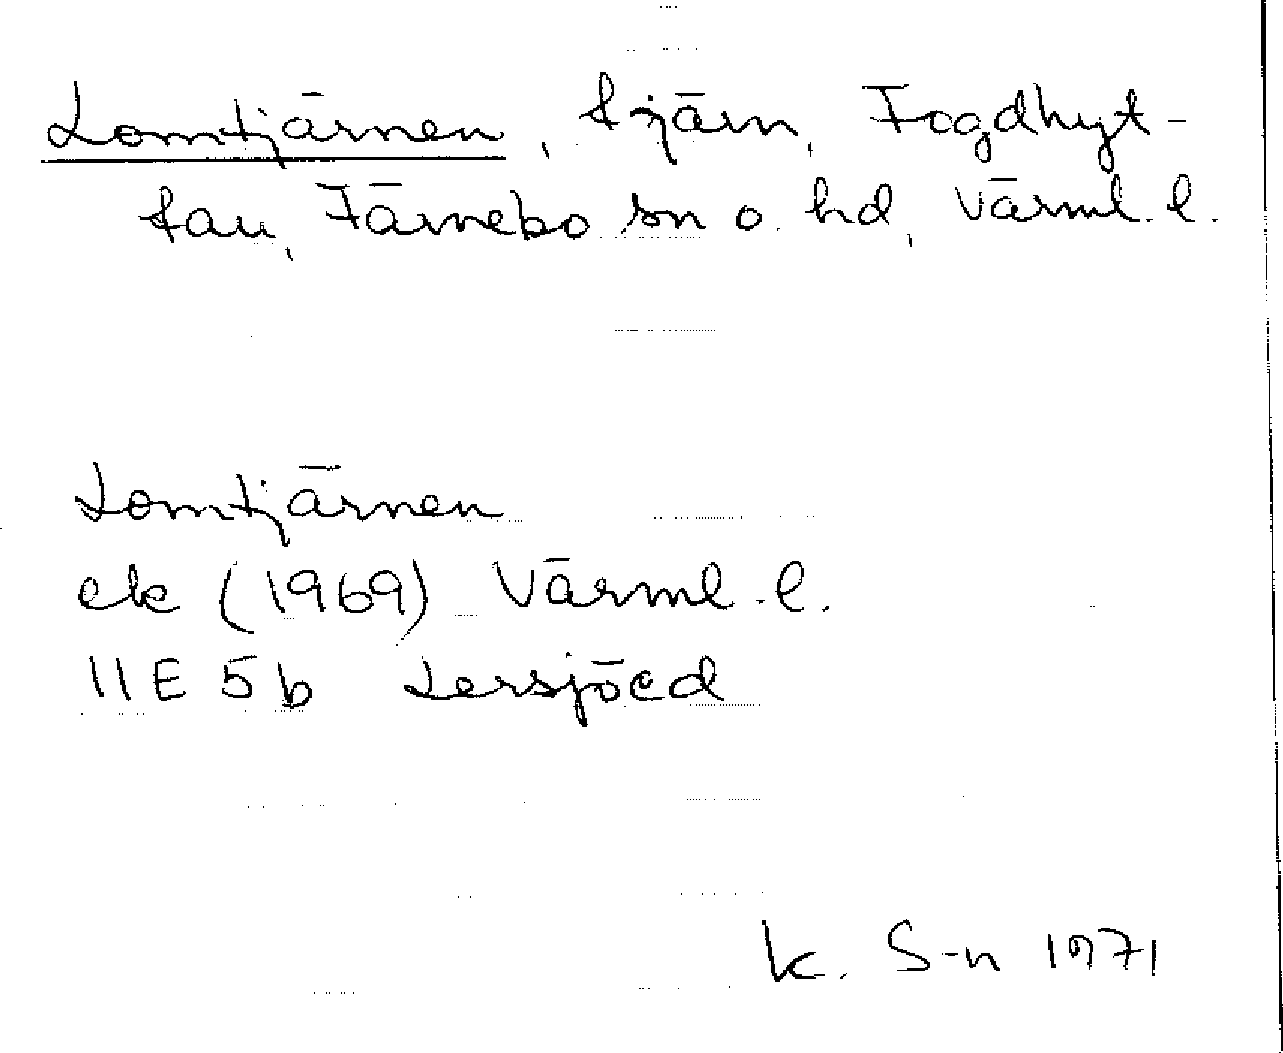 Lomtjärnen, tjärn, Fogdhyt-
tan, Färnebo sn o. hd, Värml. l.
Lomtjärnen
ek (1969) Värml. l.
11E 5b Lersjöed
K. S-n 1971